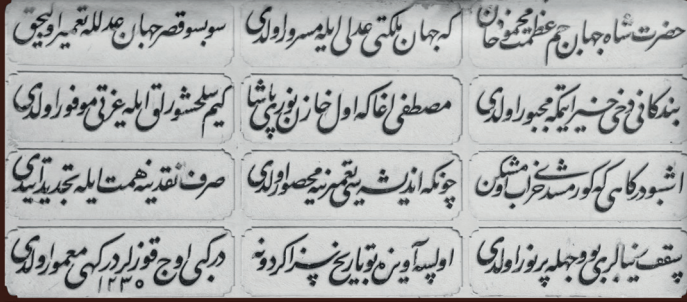 حضرت شاه جهان جم عظمت محمود خان
كه جهان ملكتی عدلی ایله مسرور اولدی
سو بسو قصر جهان عدلله تعمیر اولیجق
بندكانی دخی خیر ایتمكه مجبور اولدی
مصطفی اغا كه اول خازن نوری پاشا
كیم سلحشورلق ایله عزتی موفور اولدی
اشبو دركاهی كه كورمشدی خراب اولمش ایكن
چونكه اندیشه سی تعمیرینه محصور اولدی
صرف نقدینه همت ایله تجدید ایتدی
سقف بو وجهله پر نور اولدی
اولسه آویزه بو تاریخ سزا كردونه
در كبی اوج قوزلر دركهی معمور اولدی
١٢٣٥